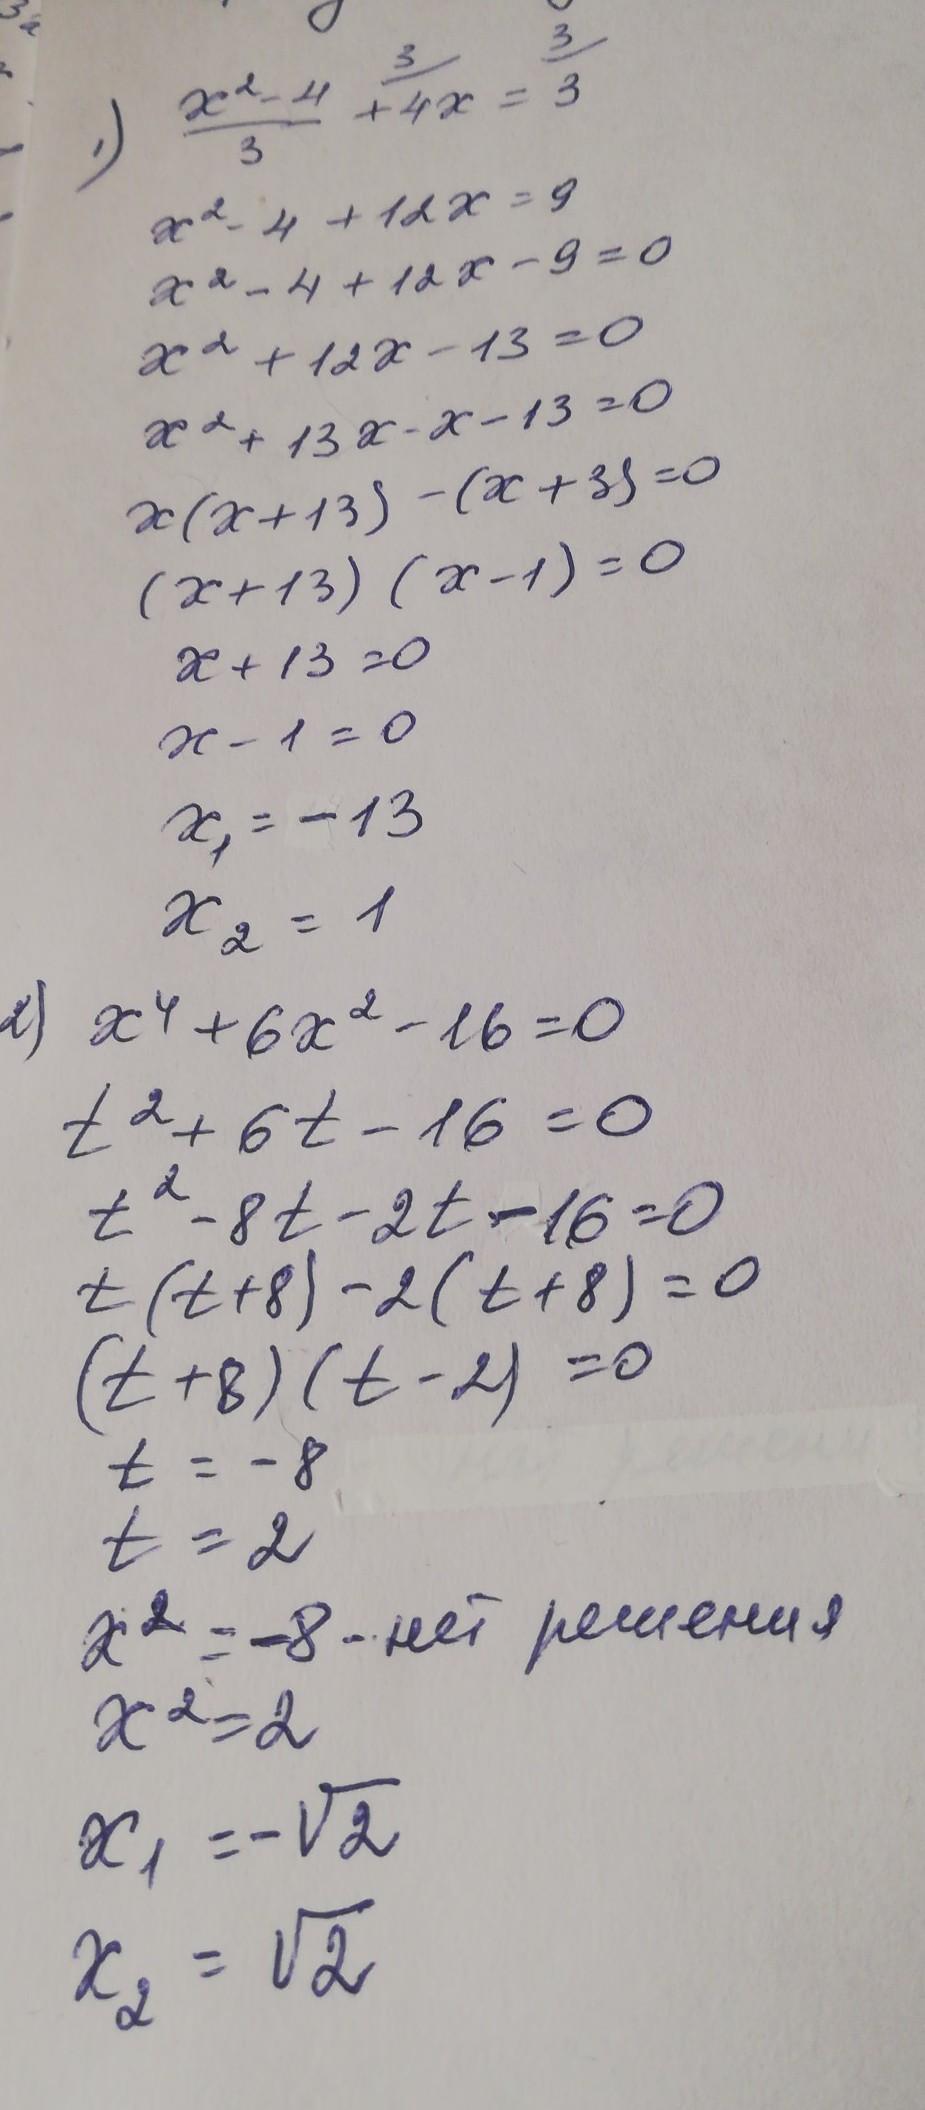 1) (x² - 4)/3 + 4x = 3
3/ 3/
x² - 4 + 12x = 9
x² - 4 + 12x - 9 = 0
x² + 12x - 13 = 0
x² + 13x - x - 13 = 0
x(x+13) - (x+3) = 0
(x+13) (x-1) = 0
x + 13 = 0
x - 1 = 0
x₁ = -13
x₂ = 1
2) x⁴ + 6x² - 16 = 0
t² + 6t - 16 = 0
t² - 8t - 2t - 16 = 0
t(t+8) - 2(t+8) = 0
(t+8)(t-2) = 0
t = -8
t = 2
x² = -8 - нет решения
x² = 2
x₁ = -√2
x₂ = √2